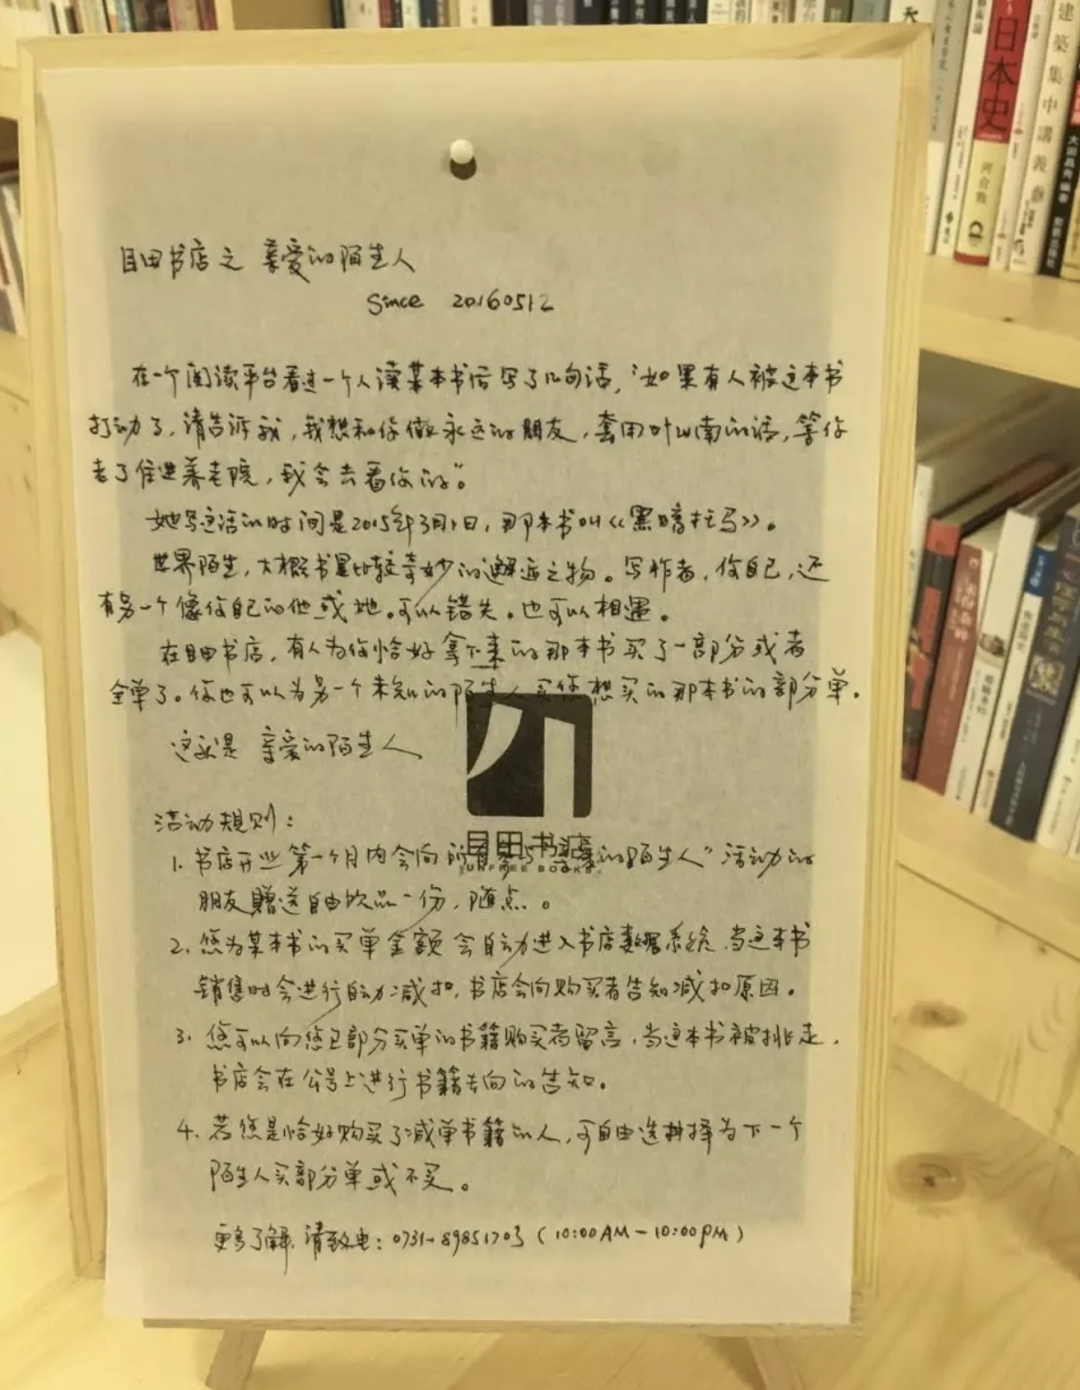 目田书店之 亲爱的陌生人
Since 20160512
在一个阅读平台看过一个人读某本书后写了几句话，“如果有人被这本书
打动了，请告诉我，我想和你做永远的朋友，套用叶山南的话，等你
老了住进养老院，我会去看你的”。
她写这话的时间是2015年3月1日，那本书叫《黑暗托马》。
世界陌生，大概书是比较奇妙的邂逅之物。写作者，你自己，还
有另一个像你自己的他或她。可以错失。也可以相遇。
在目田书店，有人为你恰好拿下来的那本书买了一部分或者
全单了。你也可以为另一个未知的陌生人买你想买的那本书的部分单。
这就是 亲爱的陌生人
活动规则：
1. 书店开业第一个月内会向所有参与“亲爱的陌生人”活动的
朋友赠送自由饮品一份，随点。
2. 您为某本书的买单金额会自动进入书店数据系统，当这本书
销售时会进行自动减扣，书店会向购买者告知减扣原因。
3. 您可以向您已部分买单的书籍购买者留言，当这本书被挑走，
书店会在公号上进行书籍去向的告知。
4. 若您是恰好购买了减单书籍的人，可自由选择为下一个
陌生人买部分单或不买。
更多了解，请致电：0731-89851703（10:00AM-10:00PM）
目田书店
日本史
河合敦
建築集中講義